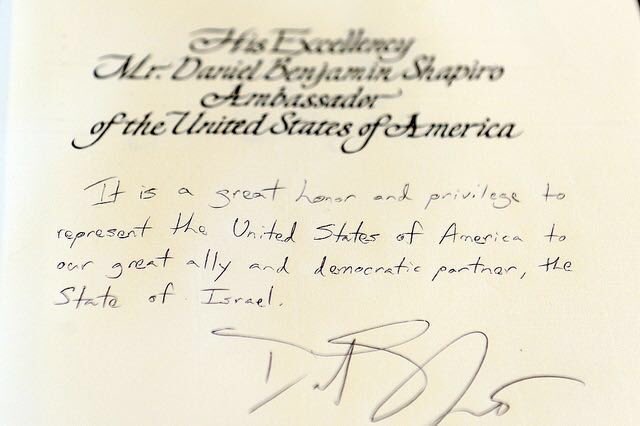 His Excellency
Mr. Daniel Benjamin Shapiro
Ambassador
of the United States of America
It is a great honor and privilege to
represent the United States of America to
our great ally and democratic partner, the
State of Israel.